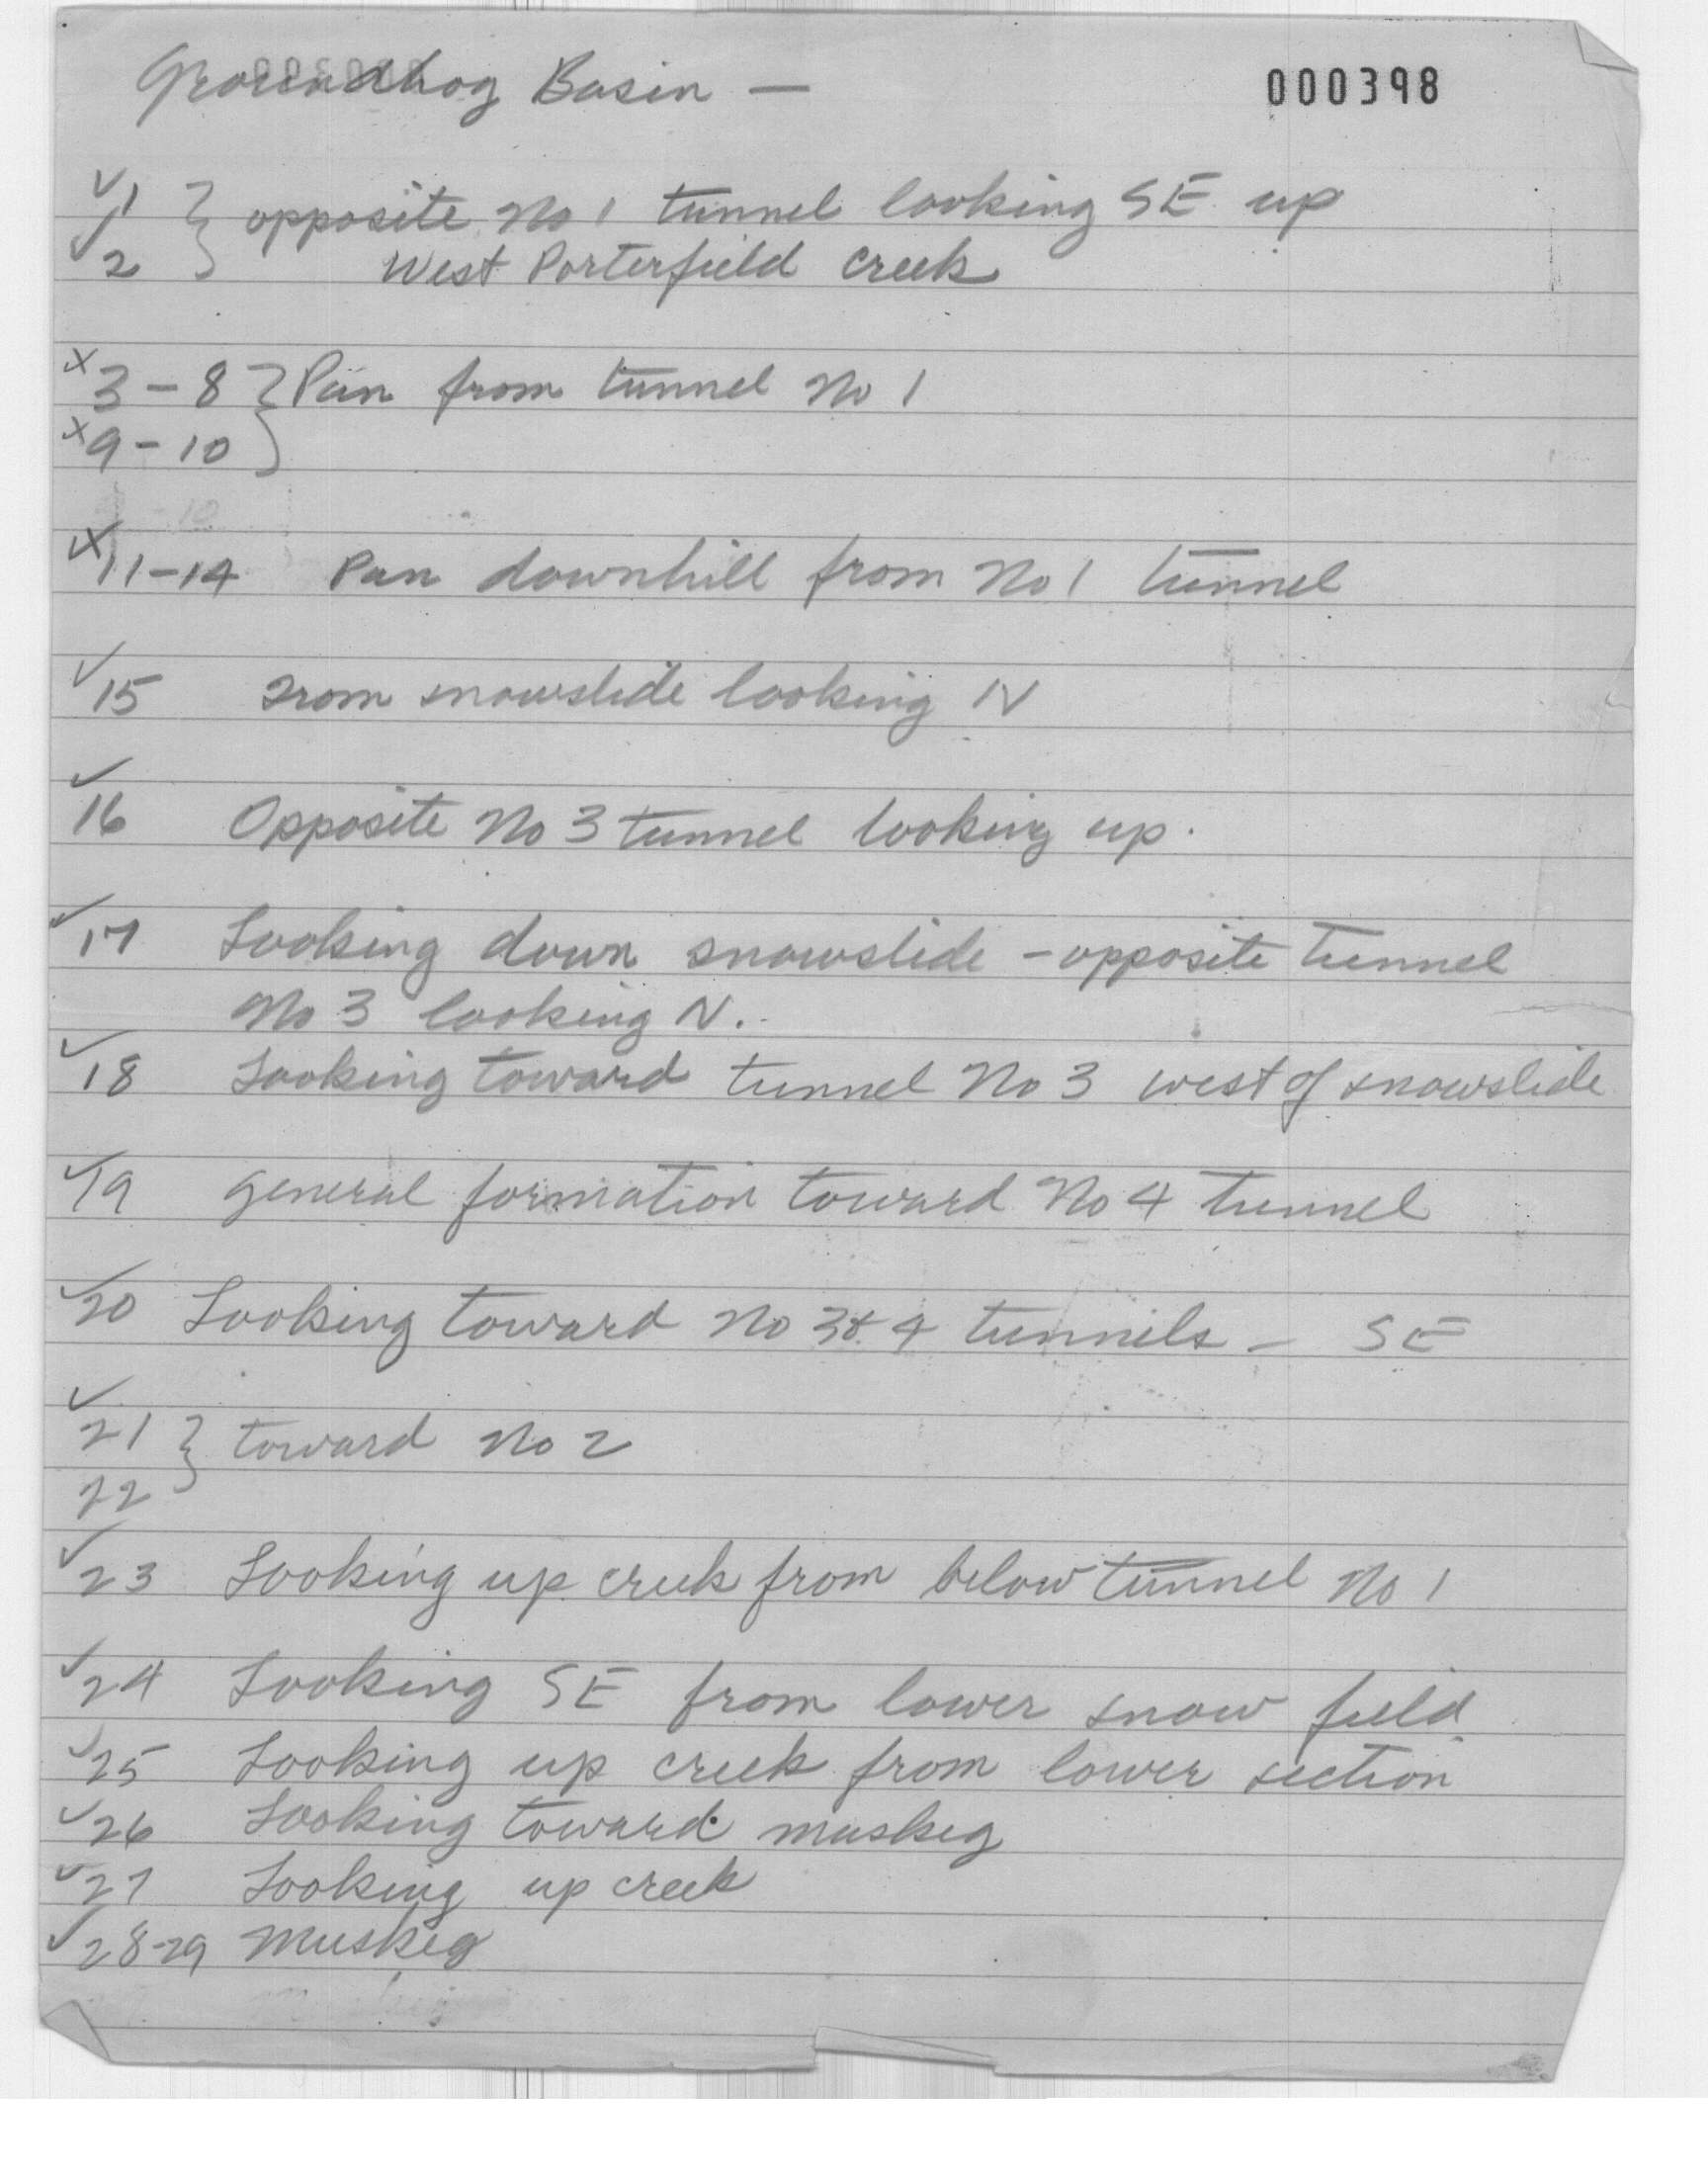 Groundhog Basin —
000398
✓1 } opposite No 1 tunnel looking SE up
✓2 } West Porterfield creek
x 3 - 8 } Pan from tunnel No 1
x 9 - 10 }
x 11-14 Pan downhill from No 1 tunnel
✓15 From snowslide looking N
✓16 Opposite No 3 tunnel looking up.
✓17 Looking down snowslide - opposite tunnel
No 3 looking N.
✓18 Looking toward tunnel No 3 west of snowslide
✓19 General formation toward No 4 tunnel
✓20 Looking toward No 3 & 4 tunnels - SE
✓21 } toward No 2
22 }
✓23 Looking up creek from below tunnel No 1
✓24 Looking SE from lower snow field
✓25 Looking up creek from lower section
✓26 Looking toward muskeg
✓27 Looking up creek
✓28-29 Muskeg